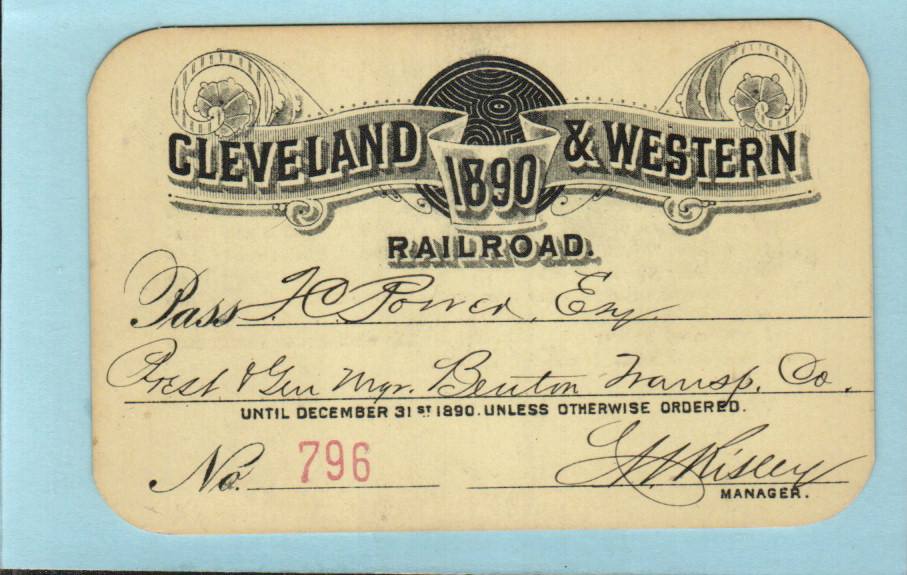 CLEVELAND 1890 & WESTERN
RAILROAD.
Pass T. C. Power, Esq.
Prest & Gen Mgr. Benton Transp. Co.
UNTIL DECEMBER 31ST 1890. UNLESS OTHERWISE ORDERED.
No. 796
MANAGER.